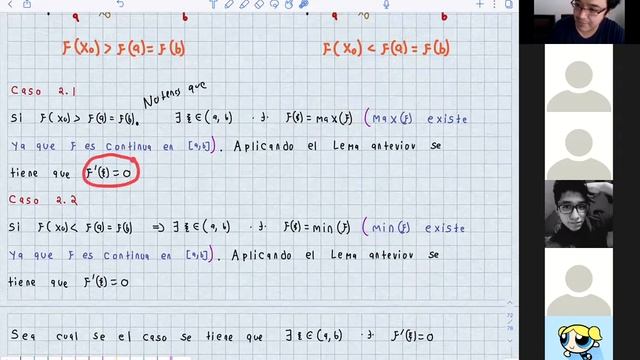 a x₀ b a x₀ b
F(x₀) > F(a) = F(b) F(x₀) < F(a) = F(b)
Caso 2.1
Notemos que
Si F(x₀) > F(a) = F(b). ∃ ξ ∈ (a, b) .t. F(ξ) = max(F) (max(F) existe
ya que F es continua en [a,b]). Aplicando el Lema anterior se
tiene que F'(ξ) = 0
Caso 2.2
Si F(x₀) < F(a) = F(b) ⇒ ∃ ξ ∈ (a, b) .t. F(ξ) = min(F) (min(F) existe
ya que F es continua en [a,b]). Aplicando el Lema anterior se
tiene que F'(ξ) = 0
72
78
Sea cual se el caso se tiene que ∃ ξ ∈ (a, b) .t. F'(ξ) = 0